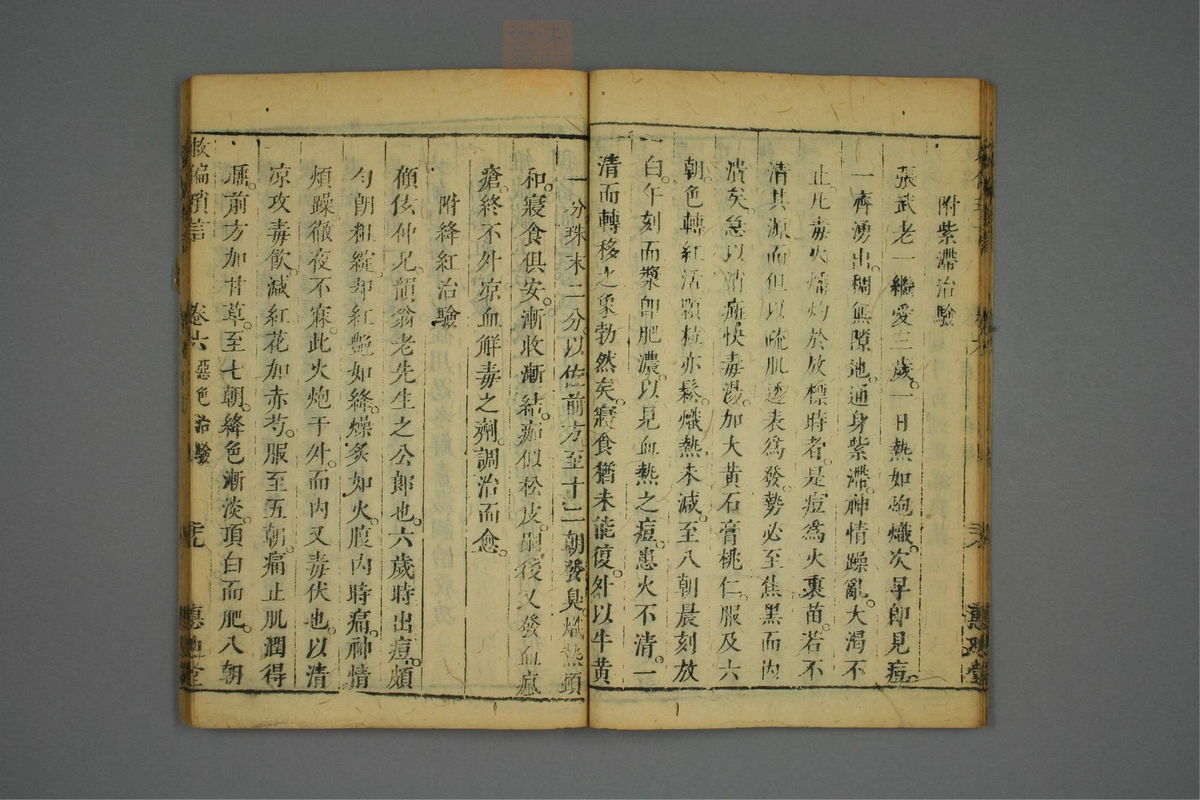 附紫滯治驗
張武老一繼愛三歲。一日熱如炮熾。次早卽見痘。
一齊湧出。稠無隙地。通身紫滯。神情躁亂。大渴不
止。凡毒火燔灼於放標時者。是痘爲火裹苗。若不
清其源。而但以疏肌透表爲發。勢必至焦黑而內
潰矣。急以消瘀快毒湯。加大黃石膏桃仁。服及六
朝。色轉紅活。顆粒亦鬆。熾熱未減。至八朝晨刻放
白。午刻而漿卽肥濃。以見血熱之痘。患火不清。一
清而轉移之象勃然矣。寢食猶未能復。外以牛黃
一分珠末二分。以佐前方。至十二朝發臭。熾熱頓
和。寢食俱安。漸收漸結。痂似松皮。嗣後又發血瘋
瘡。終不外凉血解毒之劑。調治而愈。
附絳紅治驗
傾伭仲兄。韻翁老先生之公郎也。六歲時出痘。頗
勻朗粗綻。却紅艷如絳。燥炙如火。腹內時痛。神情
煩躁。徹夜不寐。此火炮于外。而內又毒伏也。以清
凉攻毒飮。減紅花加赤芍。服至五朝。痛止肌潤得
𤺺。前方加甘草。至七朝。絳色漸淡。頂白而肥。八朝
救偏瑣言 卷六 惡色治驗 惠迪堂